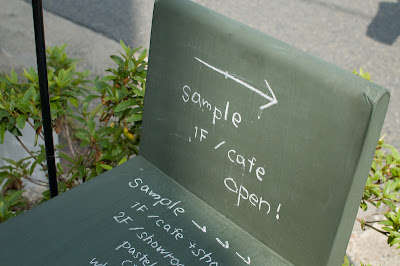 →
sample
1F / cafe
open!
sample → → →
1F / cafe + sho
2F / showroom
pastel